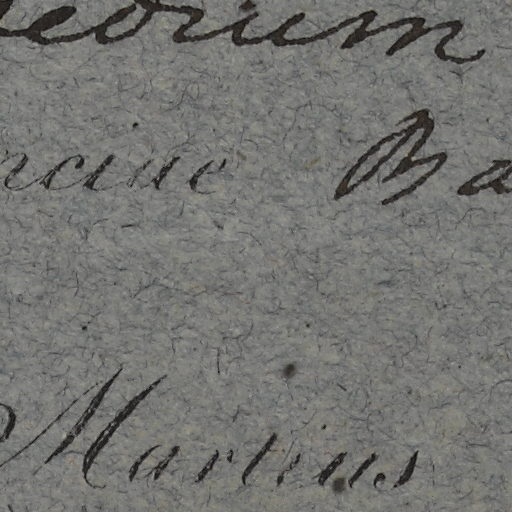 edrum
nciae Ba
Martius